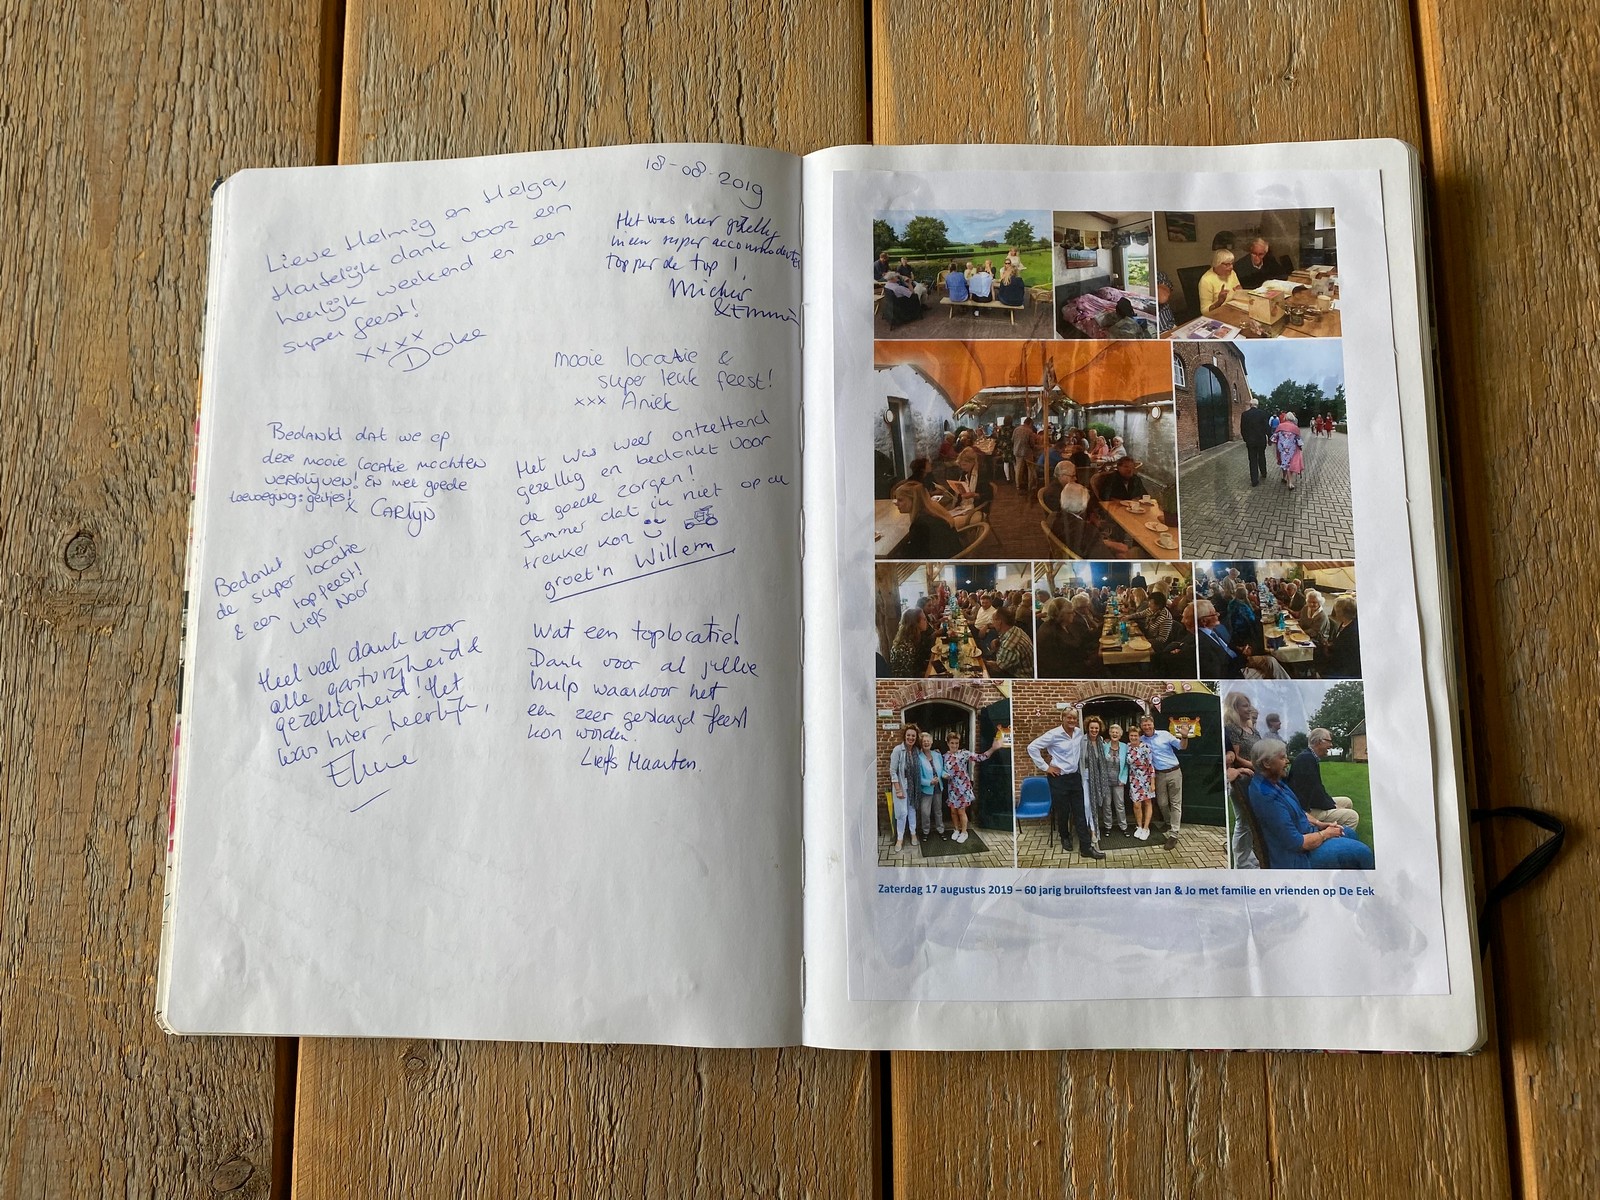 18-08-2019
Lieve Helmig en Helga,
Hartelijk dank voor een
heerlijk weekend en een
super feest!
xxxx
Doke
Het was hier gezellig
in een super accommodatie
top per de top!
& Emma
mooie locatie &
super leuk feest!
xxx Aniek
Bedankt dat we op
deze mooie locatie mochten
verblijven! En met goede
toevoeging: geitjes!
x CARlijN
Het was weer ontzettend
gezellig en bedankt voor
de goede zorgen!
Jammer dat ik niet op de
trekker kon
groet'n Willem
Bedankt voor
de super locatie
& een topfeest!
Liefs Noor
Heel veel dank voor
alle gastvrijheid &
gezelligheid! Het
was hier heerlijk,
Wat een toplocatie!
Dank voor al jullie
hulp waardoor het
een zeer geslaagd feest
kon worden.
Liefs Maarten.
Zaterdag 17 augustus 2019 – 60 jarig bruiloftsfeest van Jan & Jo met familie en vrienden op De Eek